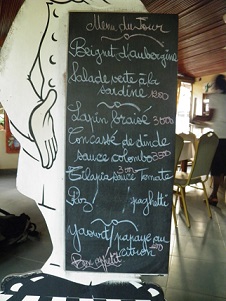 Menu du Jour
Beignet d'aubergine
Salade verte à la
sardine
Lapin braisé 3000
Concassé de dinde
sauce colombo 3500
Tilapia sauce Tomate
Riz / spaghetti
Yaourt / papaye au
citron
Bon appétit